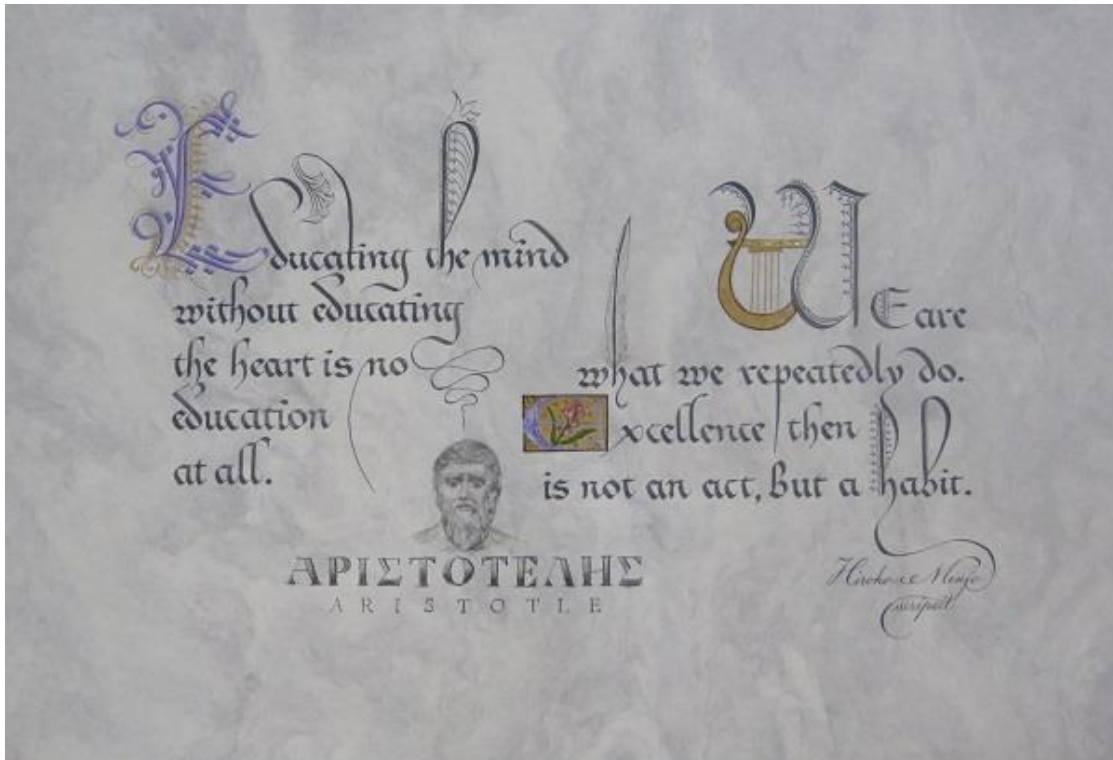 Educating the mind
without educating
the heart is no
education
at all.
WE are
what we repeatedly do.
Excellence then
is not an act, but a habit.
ΑΡΙΣΤΟΤΕΛΗΣ
ARISTOTLE
scripsit